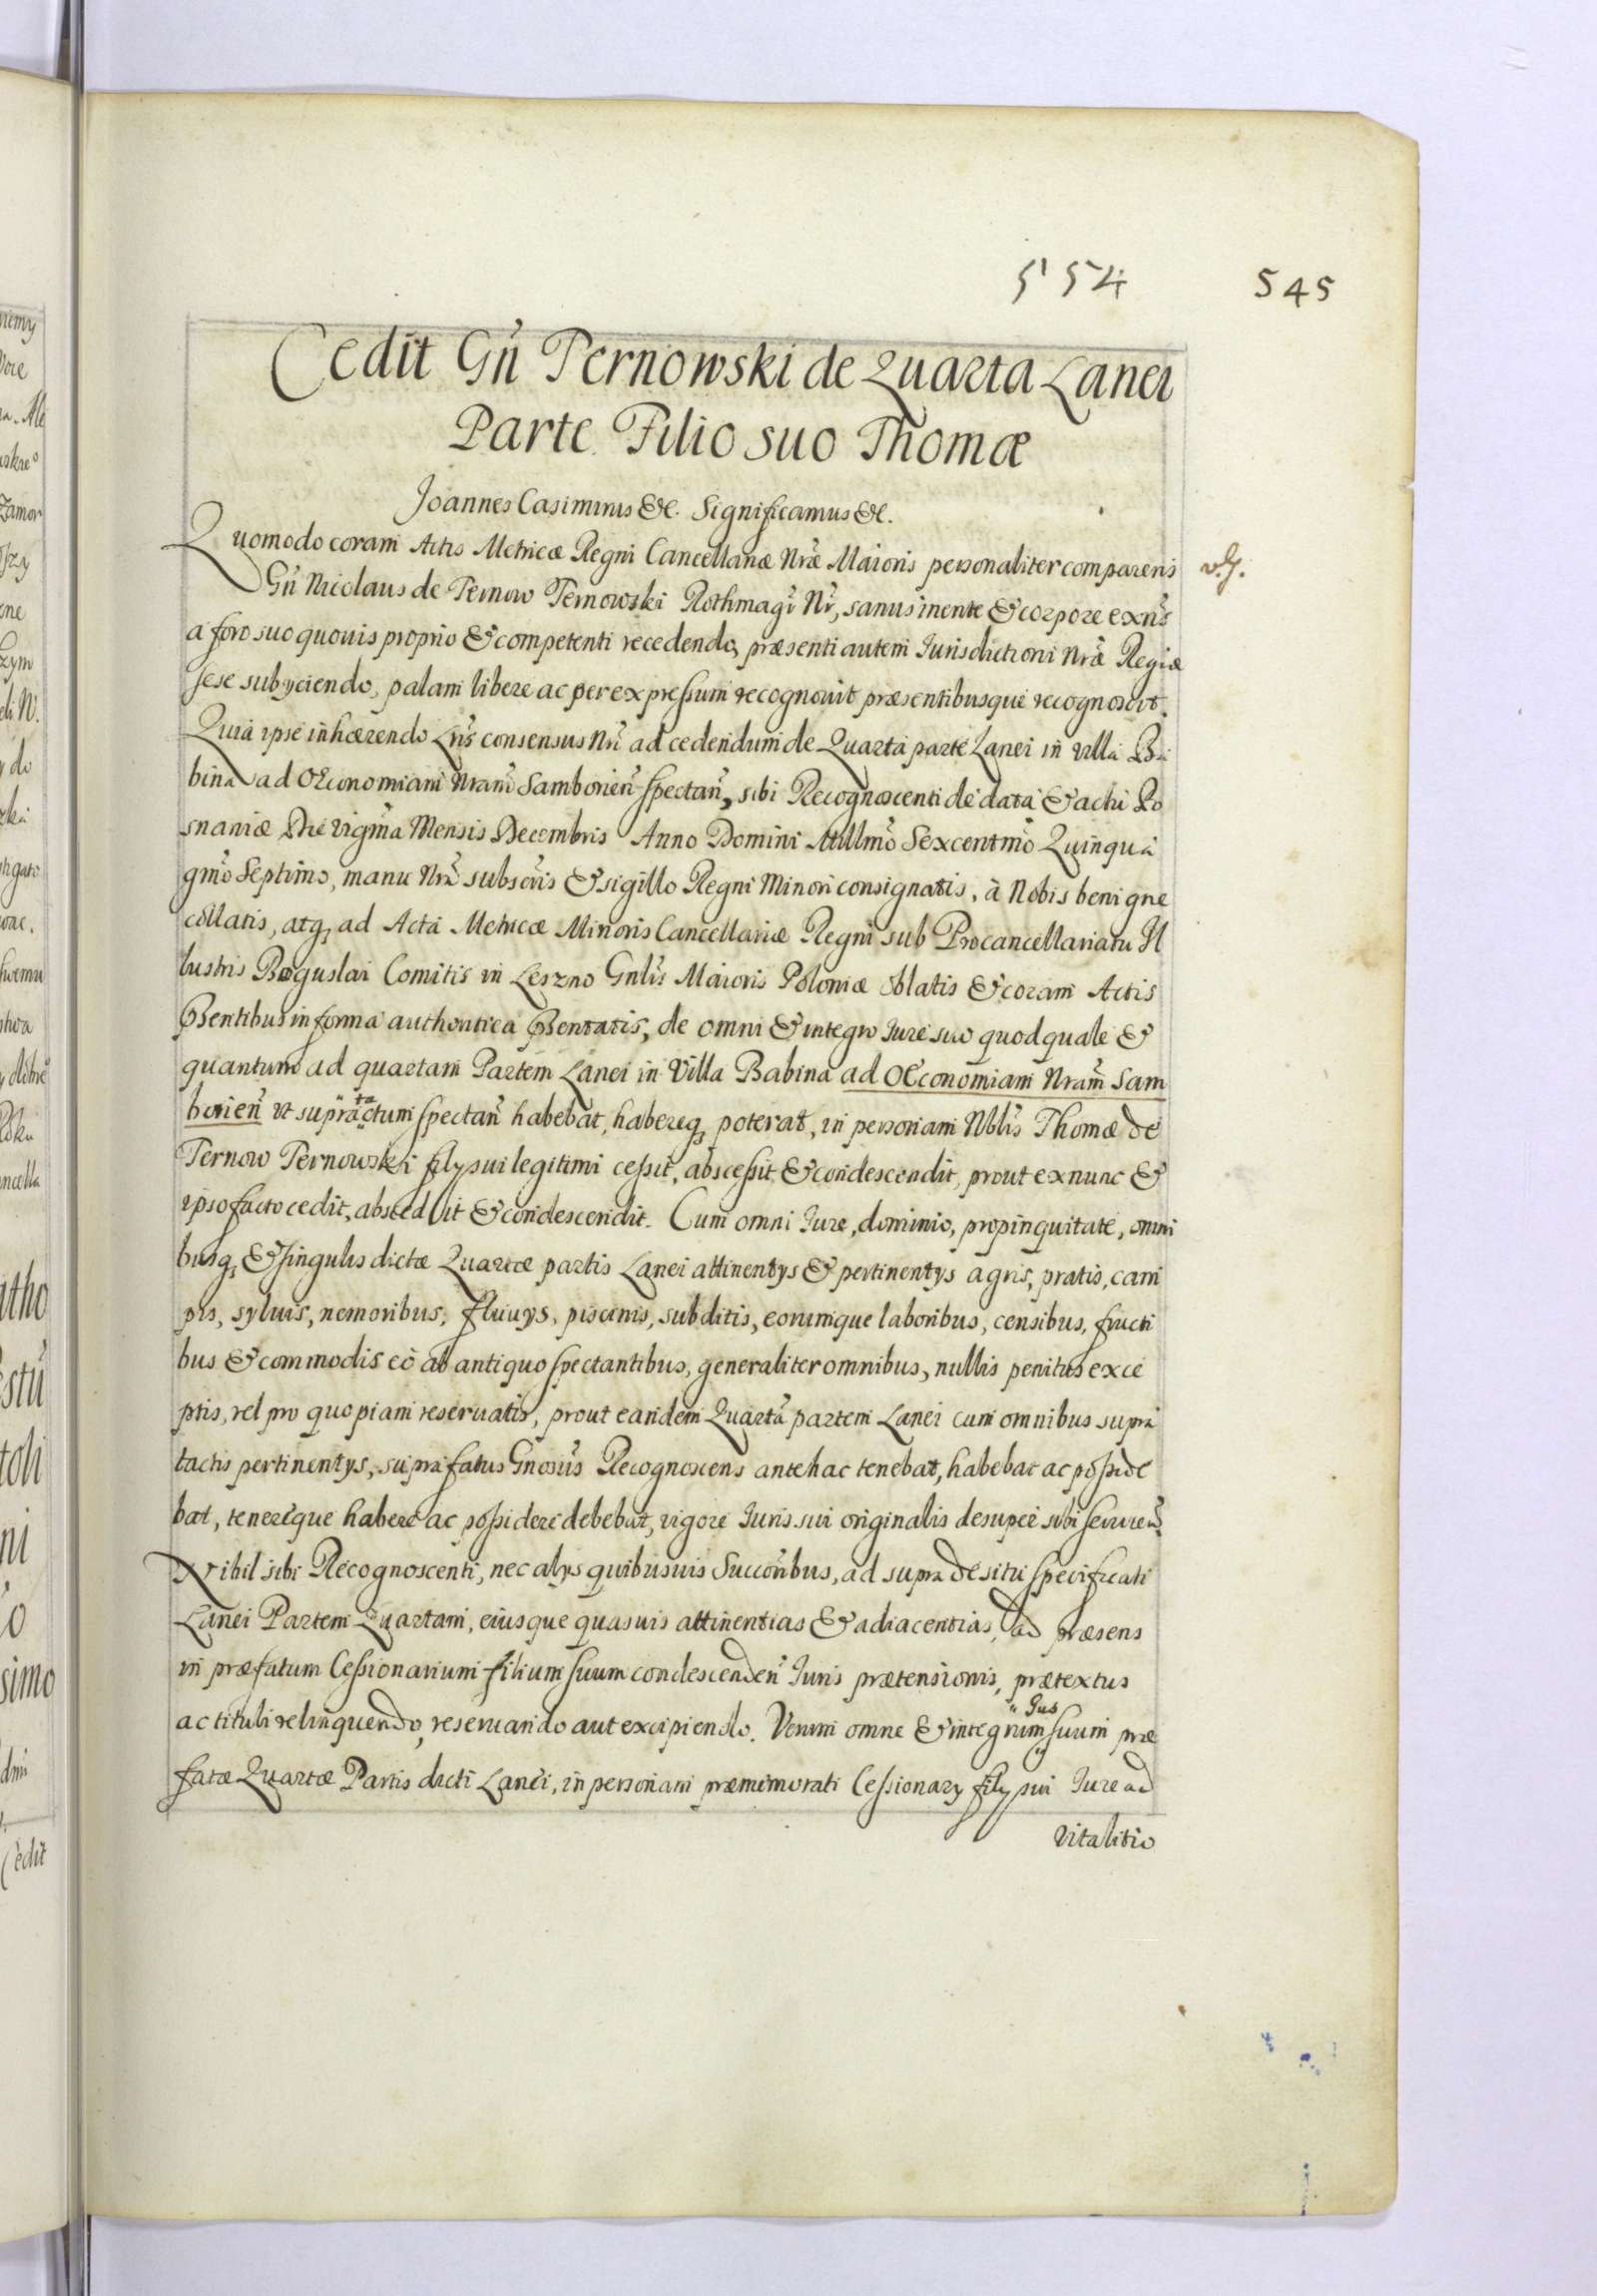 554 545
Cedit Gn̄ Ternowski de Quarta Lanei
Parte Filio suo Thomæ
Joannes Casimirus &c. Significamus &c.
Quomodo coram Actis Metricæ Regni Cancellariæ Nræ Maioris personaliter comparens
Gn̄ Nicolaus de Ternow Ternowski Rothmagr̄ Nr̄, sanus mente & corpore exn̄s
a foro suo quouis proprio & competenti recedendo, præsenti autem Jurisdictioni Nræ Regiæ
sese subyciendo, palam libere ac per expressum recognouit præsentibusque recognoscit.
Quia ipse inhærendo Lrīs consensus Nrī ad cedendum de Quarta parte Lanei in villa Ba
bina ad OEconomiam Nram̄ Samborien̄ spectan̄, sibi Recognoscenti de data & actu Po
snaniæ Die vigm̄a Mensis Decembris Anno Domini Millmō Sexcentmō Quinqua
gmō Septimo, manu Nrā subscrīs & sigillo Regni Minori consignatis, à Nobis benigne
collatis, atq3 ad Acta Metricæ Minoris Cancellariæ Regni sub Procancellariatu Il
lustris Boguslai Comitis in Leszno Gnlīs Maioris Poloniæ oblatis & coram Actis
pn̄tibus in forma authentica pn̄tatis, de omni & integro Jure suo quod quale &
quantum ad quartam Partem Lanei in Villa Babina ad OEconomiam Nram̄ Sam
borien̄ vt supra tactum spectan̄ habebat, habereq3 poterat, in personam Nblīs Thomæ de
Ternow Ternowski filÿ sui legitimi cessit, abscessit & condescendit, prout ex nunc &
ipso facto cedit, abscedit & condescendit. Cum omni Jure, dominio, propinquitate, omni
busq3 & singulis dictæ Quartæ partis Lanei attinentÿs & pertinentÿs agris, pratis, cam
pis, syluis, nemoribus, fluuÿs, piscinis, subditis, eorumque laboribus, censibus, fructi
bus & commodis eò ab antiquo spectantibus, generaliter omnibus, nullis penitus exce
ptis, vel pro quopiam reseruatis, prout eandem Quartā partem Lanei cum omnibus supra
tactis pertinentÿs, supra fatus Gnosūs Recognoscens antehac tenebat, habebat ac posside
bat, tenereque habere ac possidere debebat, vigore Juris sui originalis desuper sibi seruien̄.
Nihil sibi Recognoscenti, nec alÿs quibusuis Succorībus, ad supra de situ specificati
Lanei Partem Quartam, eiusque quasuis attinentias & adiacentias, ad præsens
in præfatum Cessionarium filium suum condescenden̄ Juris prætensionis, prætextus
ac tituli relinquendo, reseruando aut excipiendo. Verum omne & integrum Jus suum præ
fatæ Quartæ Partis dicti Lanei, in personam præmemorati Cessionarÿ filÿ sui Jure ad
vitalitio